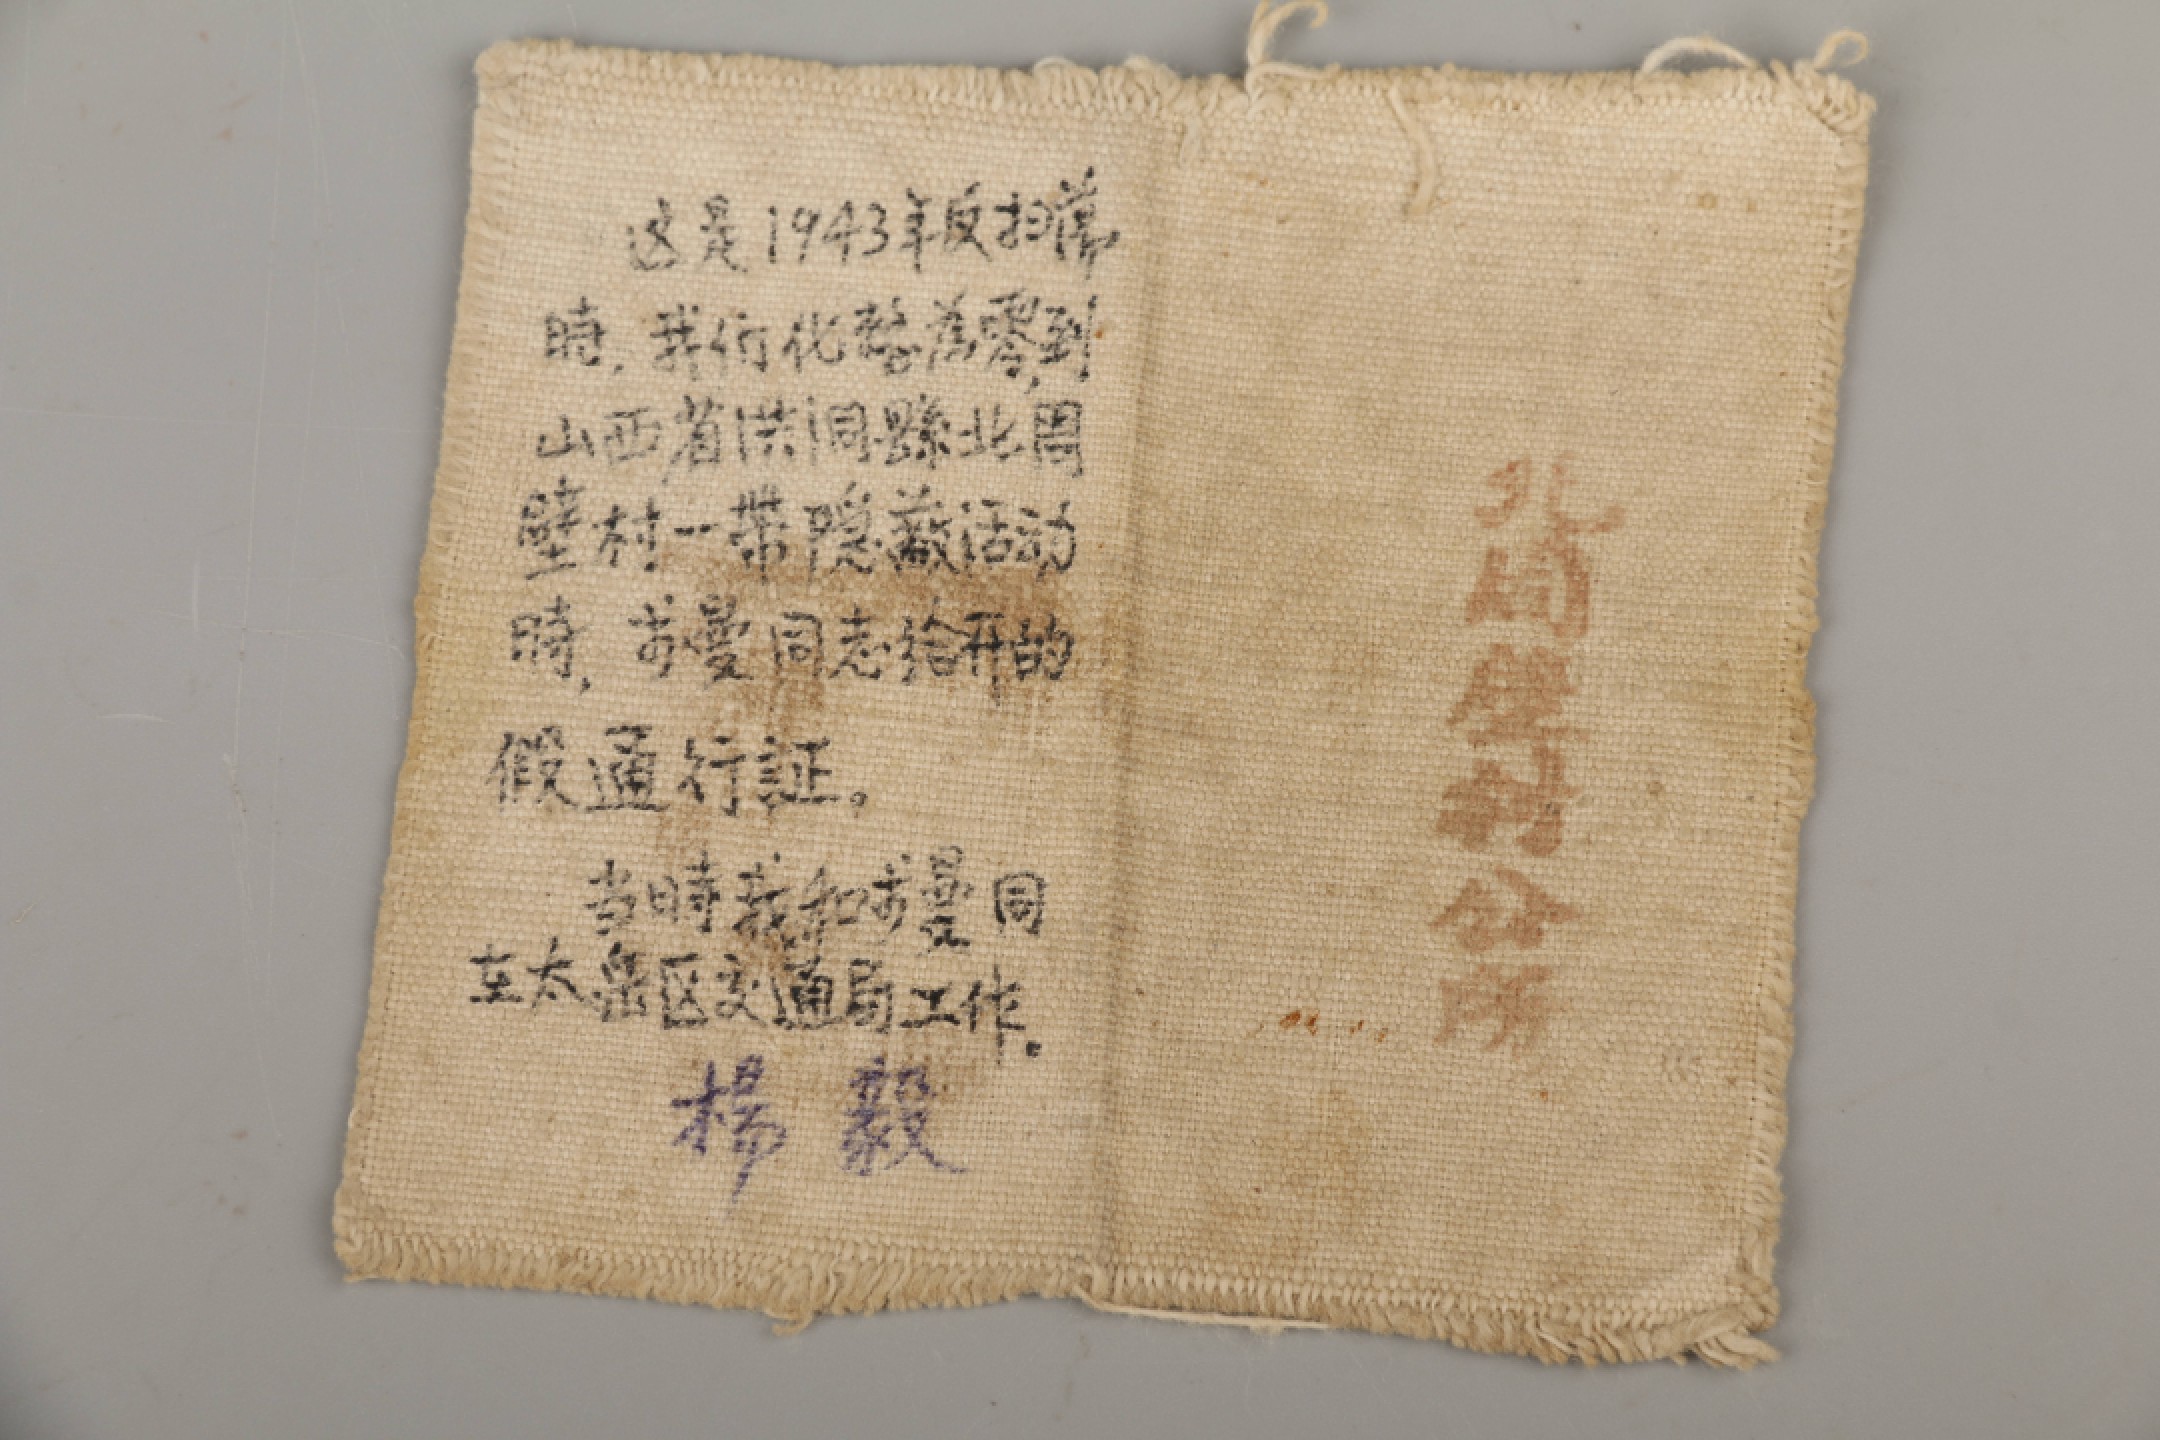 这是1943年反扫荡
時，我们化整为零，到
山西省洪洞縣北周
壁村一帶隐蔽活动
時，曼同志给开的
假通行証。
当時我和曼同
在太岳区交通局工作。
楊毅
北周壁村公所